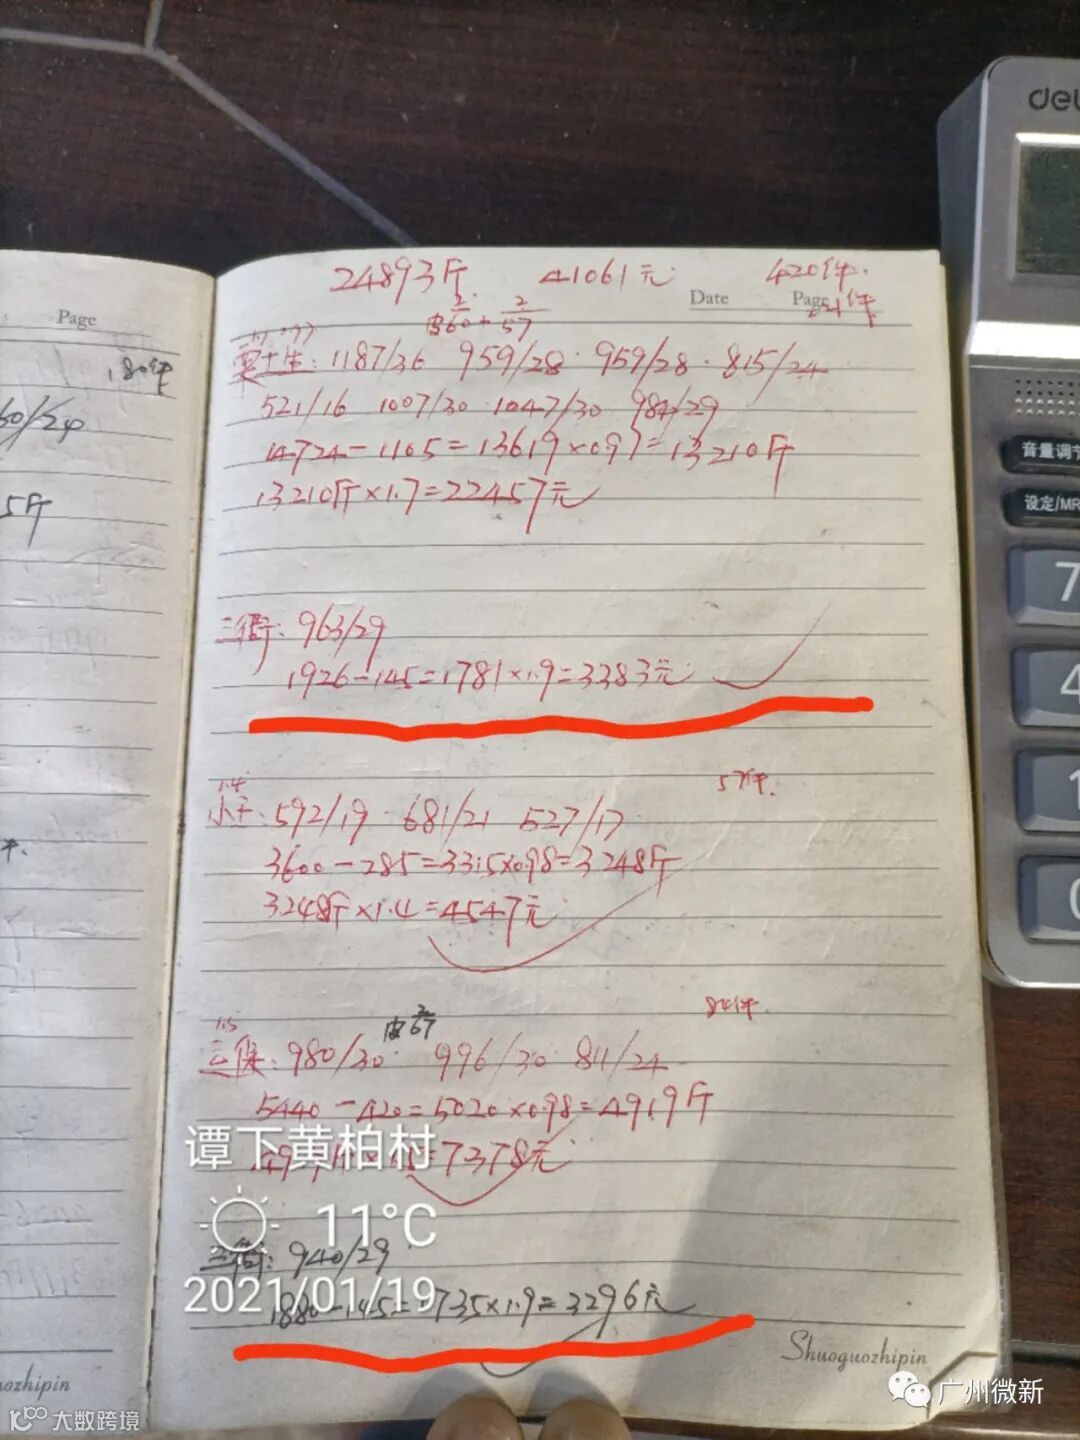 24893斤 41061元 420件.
Date Page 221件
皮60+2/57
1187/36 959/28 · 959/28 · 815/24
521/16 1007/30 · 1047/30 984/29
14724-1105=13619×0.97=13210斤
13210斤×1.7=22457元
三衙: 963/29
1926-145=1781×1.9=3383元
1.4 57件.
小王: 592/19 681/21 527/17
3600-285=3315×0.98=3248斤
3248斤×1.4=4547元
84件.
1.5 皮67
980/30 996/30 811/24
5440-420=5020×0.98=4919斤
=7378元
三衙: 940/29
1880-145=1735×1.9=3296元
谭下黄柏村
11°C
2021/01/19
Shuoguozhipin
广州微新
大数跨境
Page
180件
60/24
5斤
件.
uozhipin
deli
音量调节
设定/MR
7
4
1
0